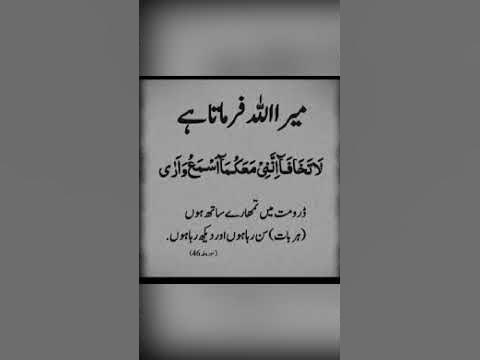 میرا اللہ فرماتا ہے
لَا تَخَافَآ اِنَّنِیْ مَعَكُمَآ اَسْمَعُ وَاَرٰی
ڈرو مت میں تمھارے ساتھ ہوں
(ہر بات) سن رہا ہوں اور دیکھ رہا ہوں.
(سورہ طہ 46)